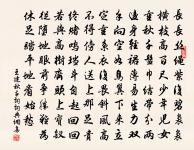 長長絲繩紫復碧裊裊
橫枝高百尺少年兒女
重秋千盤巾結帶分兩
邊身輕裙薄易生力雙
手向空如鳥翼下來立
定重繫衣復畏斜風高
不得傍人送上那足貴
終賭鳴璫鬥自起回回
若與高樹齊頭上寶釵
從墮地眼前爭勝難為
休足踏平地看始愁
王建秋千詞